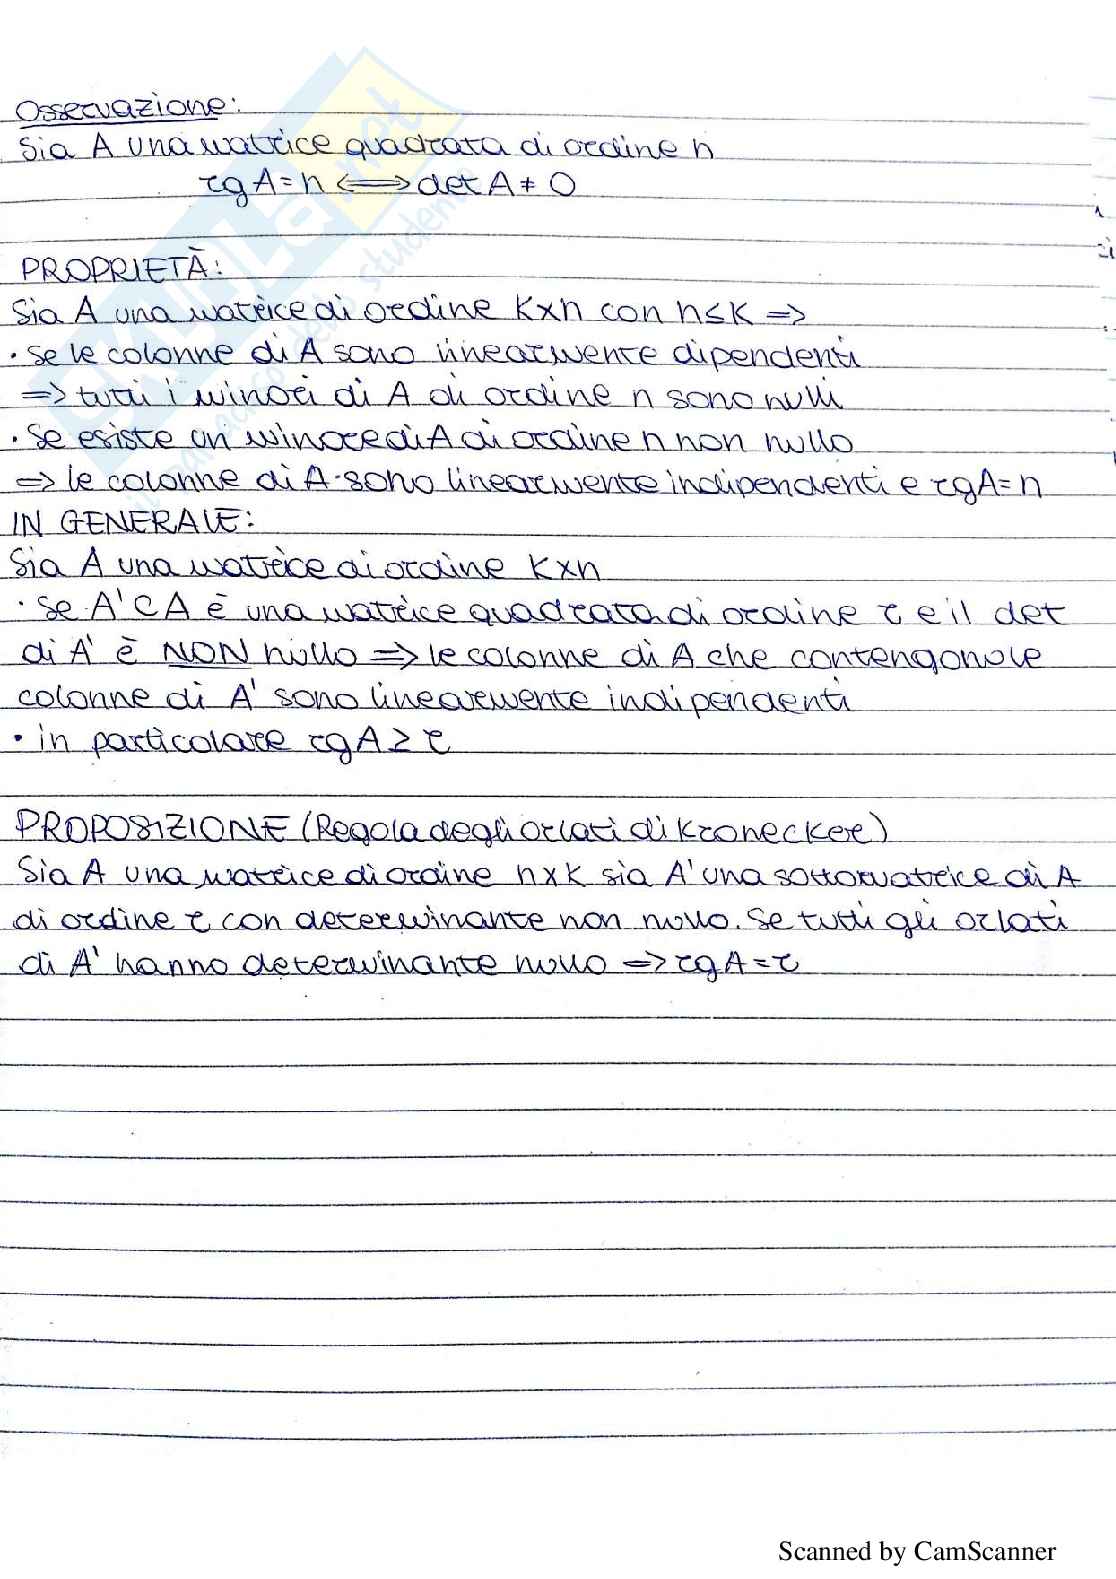 Osservazione:
Sia A una matrice quadrata di ordine n
rgA = n ⟺ det A ≠ 0
PROPRIETÀ:
Sia A una matrice di ordine K×n con n≤K ⇒
• se le colonne di A sono linearmente dipendenti
⇒ tutti i minori di A di ordine n sono nulli
• Se esiste un minore di A di ordine n non nullo
⇒ le colonne di A sono linearmente indipendenti e rgA = n
IN GENERALE:
Sia A una matrice di ordine K×n
• Se A' ⊂ A è una matrice quadrata di ordine r e il det
di A' è NON nullo ⇒ le colonne di A che contengono le
colonne di A' sono linearmente indipendenti
• in particolare rgA ≥ r
PROPOSIZIONE (Regola degli orlati di Kronecker)
Sia A una matrice di ordine n×K sia A' una sottomatrice di A
di ordine r con determinante non nullo. Se tutti gli orlati
di A' hanno determinante nullo ⇒ rgA = r
Scanned by CamScanner